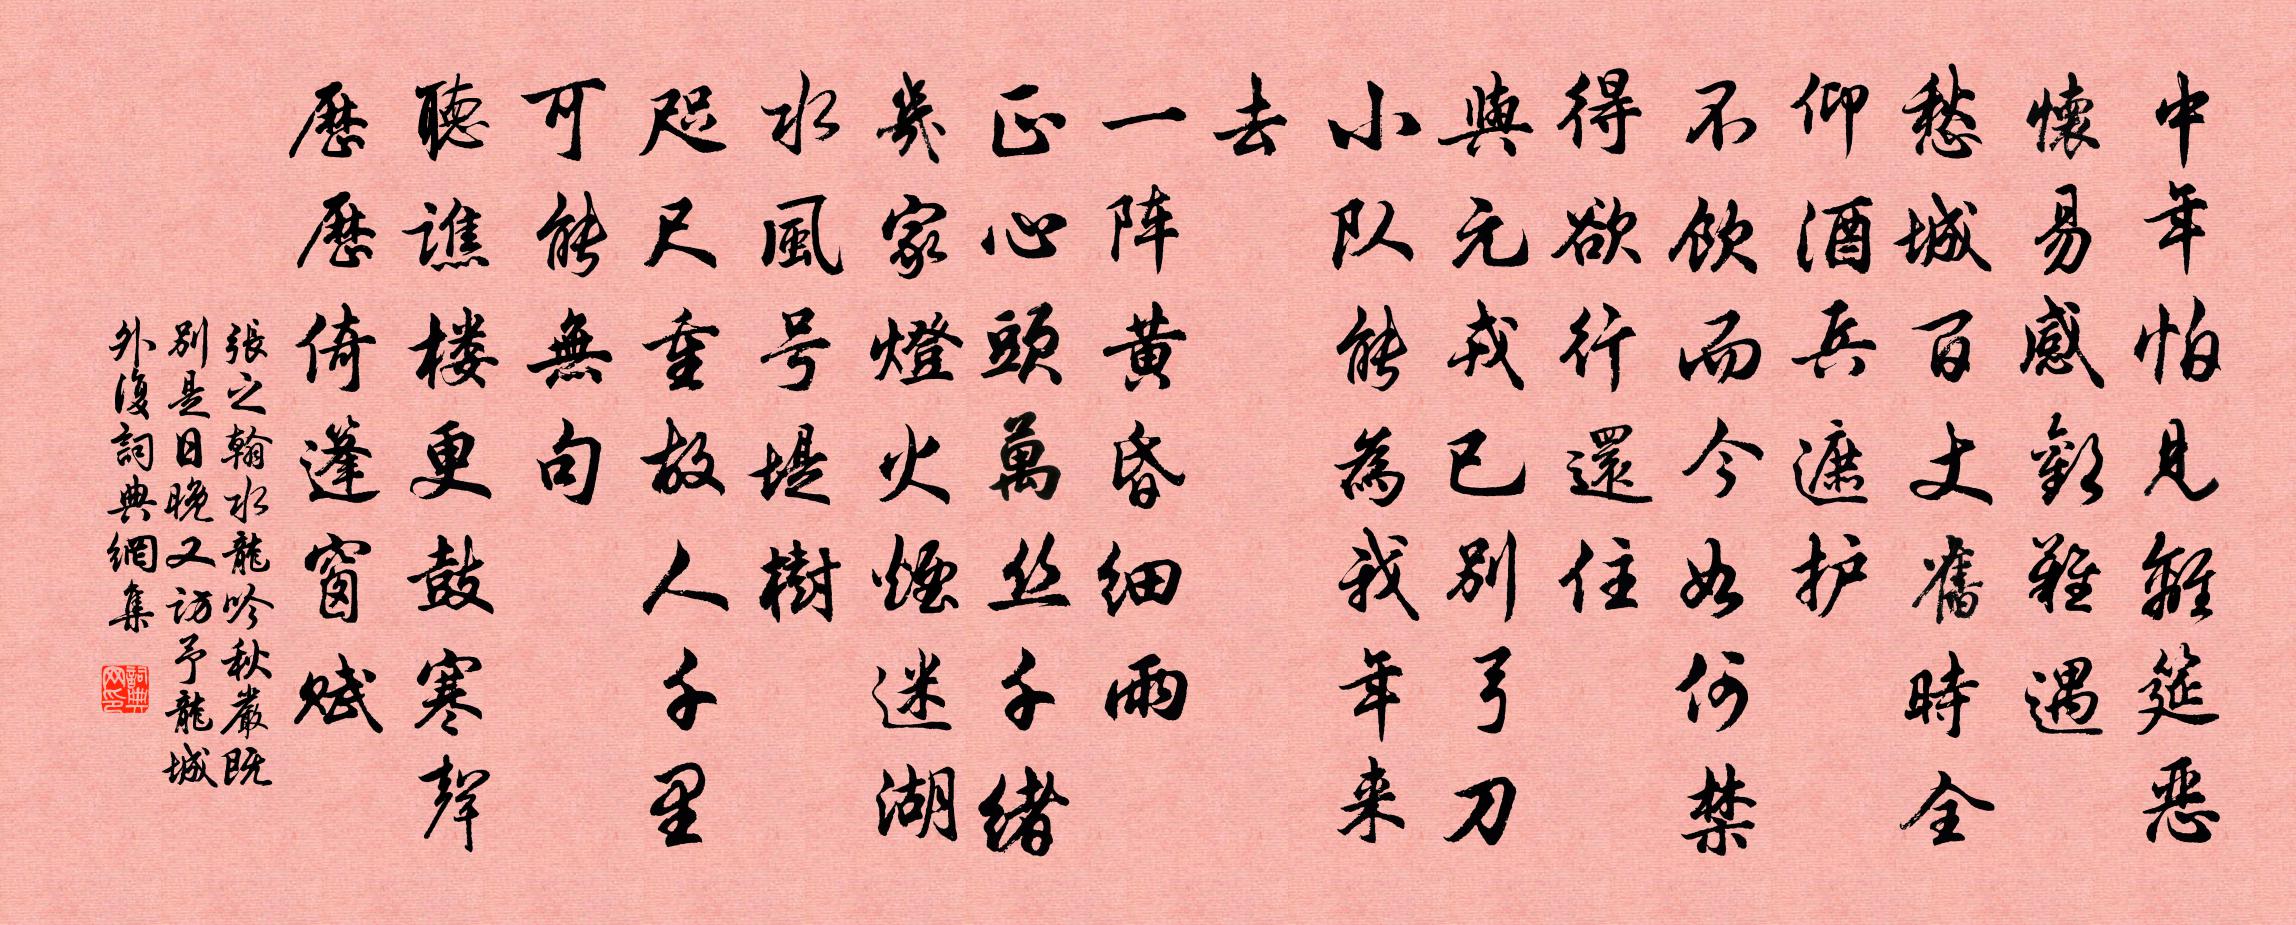 中年怕見離筵惡
懷易感歡難遇
愁城百丈舊時全
仰酒兵遮护
不飲而今如何禁
得欲行還住
與元戎已別弓刀
小队能為我年来
去
一阵黄昏细雨
正心頭萬丝千緒
幾家燈火煙迷湖
水風号堤樹
咫尺重故人千里
可能無句
聽譙楼更鼓寒聲
歷歷倚蓬窗賦
張之翰水龍吟秋巖既
別是日晚又訪予龍城
外復詞典網集
詞典网印